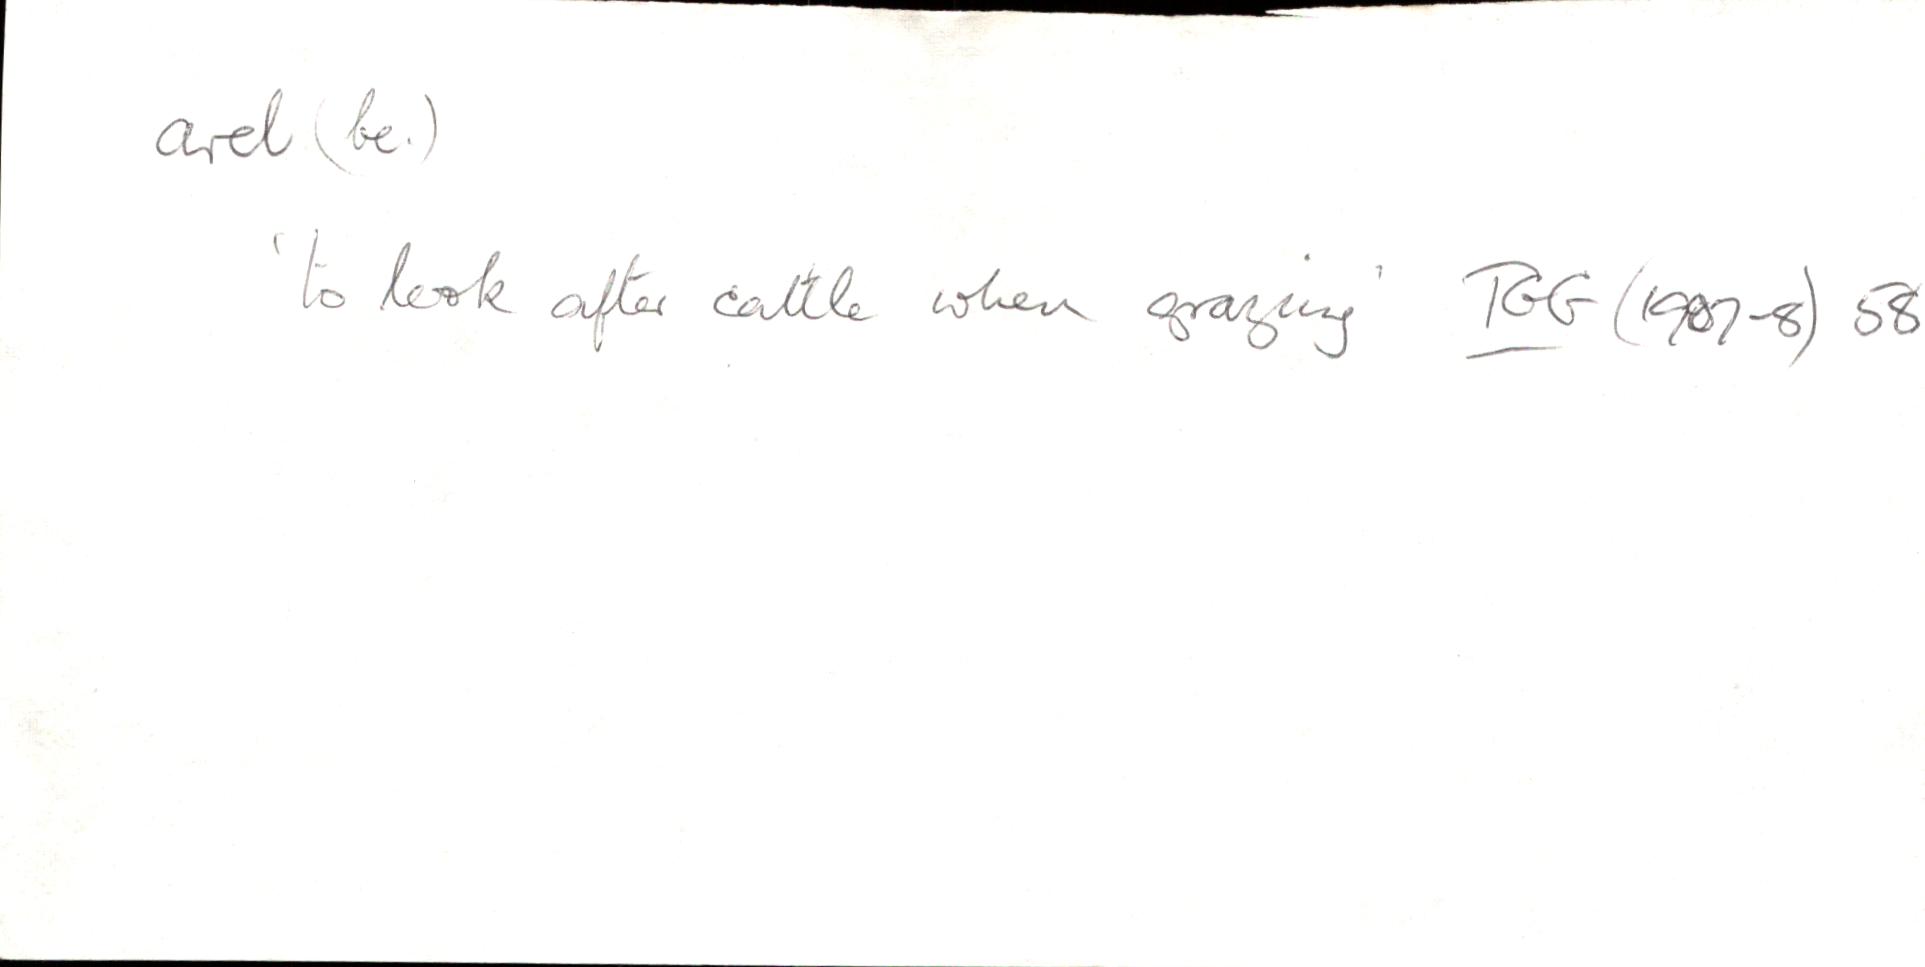 arel (be.)
'to look after cattle when grazing' TGG (1907-8) 58